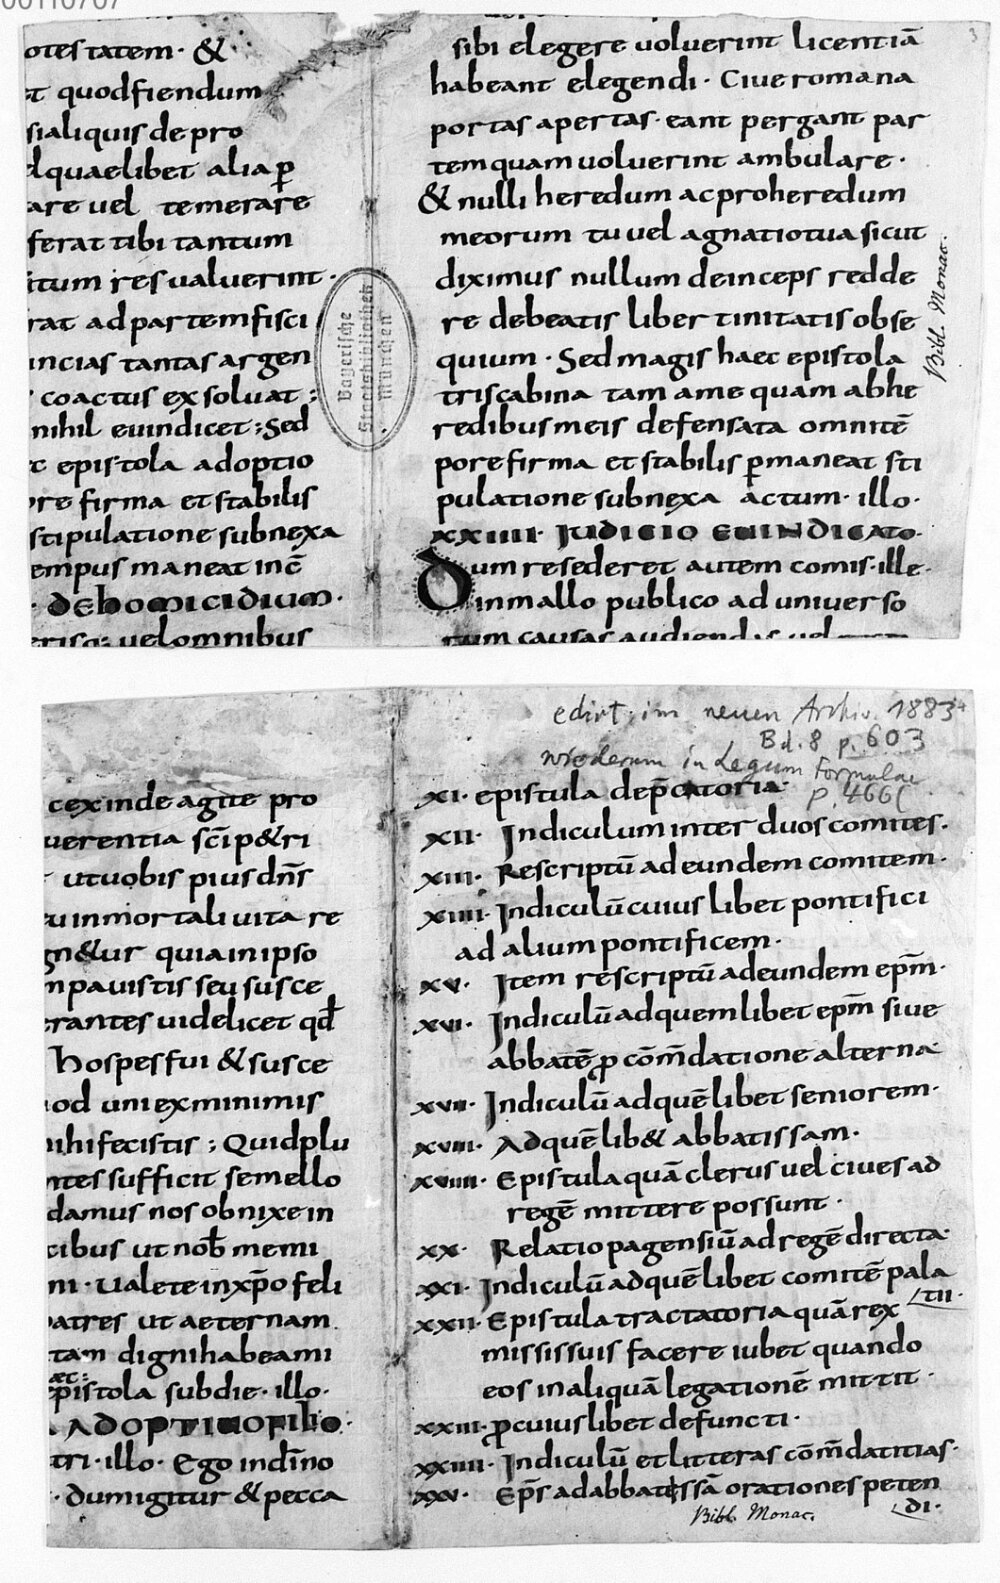 otestatem · &
t quodfiendum
sialiquis de pro
dquaelibet alia ꝑ
are uel temerare
ferat tibi tantum
itum res ualuerint ·
rat ad partem fisci
uncias tantas argen
coactus exsoluat ;
nihil euindicet ; Sed
c epistola adoptio
re firma et stabilis
stipulatione subnexa
empus maneat incē
· DE homicidium ·
uelomnibus
sibi elegere uoluerint licentiā
habeant elegendi · Ciue romana
portas apertas · eant pergant par
tem quam uoluerint ambulare ·
& nulli heredum ac proheredum
meorum tu uel agnatio tua sicut
diximus nullum deinceps redde
re debeatis liber tinitatis obse
quium · Sed magis haec epistola
triscabina tam a me quam ab he
redibus meis defensata omni tē
pore firma et stabilis ꝑmaneat sti
pulatione subnexa actum · illo ·
XXIIII · IUDICIO EUINDICATO ·
Dum resederet autem comis · ille ·
in mallo publico ad uniuerso
rum causas audiendas uel
3
Bibl. Monac.
Bayerische
Staatsbibliothek
München
edirt im neuen Archiv. 1883
Bd. 8 p. 603
wiederum in Legum Formulae
p. 466
c exinde agite pro
uerentia sc̄i p&ri
utuobis pius dn̄s
u inmortali uita re
gn&ur quia in ipso
m pauistis seu susce
erantes uidelicet qđ
hospes fui & susce
od uni ex minimis
mihi fecistis ; Quid plu
ntes sufficit semel lo
damus nos obnixe in
cibus ut nob̄ memi
ni · Ualete in xp̄o feli
patres ut aeternam
tam digni habeami
epistola sub die · illo ·
ADOPTIUO FILIO ·
tri · illo · Ego in dīno
· dum igitur & pecca
XI · epistula dep̄catoria ·
XII · Indiculum inter duos comites ·
XIII · Rescriptū ad eundem comitem ·
XIIII · Indiculū cuius libet pontifici
ad alium pontificem ·
XV · Item rescriptū ad eundem ep̄m ·
XVI · Indiculū ad quem libet ep̄m siue
abbatē ꝓ com̄datione alterna
XVII · Indiculū ad quē libet seniorem ·
XVIII · Ad quē lib& abbatissam ·
XVIIII · Epistula quā clerus uel ciues ad
regē mittere possunt ·
XX · Relatio pagensiū ad regē directa ·
XXI · Indiculū ad quē libet comitē pala
tii ·
XXII · Epistula tractatoria quā rex
missis suis facere iubet quando
eos in aliquā legationē mittit ·
XXIII · ꝓ cuius libet defuncti ·
XXIIII · Indiculū et litteras com̄datitias ·
XXV · Ep̄s ad abbatissā orationes peten
di ·
Bibl. Monac.